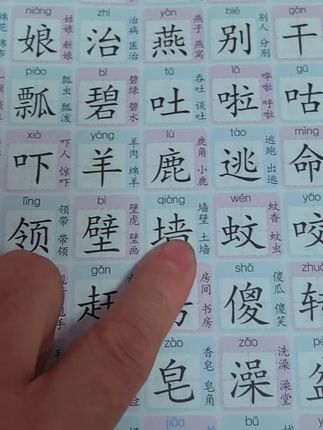 niáng zhì yàn bié
娘 姑娘 新娘 治 治病 医治 燕 燕子 燕窝 别 别人 分别 干
piáo bì tǔ lā gū
瓢 瓢虫 瓢泼 碧 碧绿 碧水 吐 吞吐 谈吐 啦 哗啦 呼啦 咕
xià yáng lù táo mìng
吓 吓人 惊吓 羊 羊肉 绵羊 鹿 鹿角 小鹿 逃 逃跑 出逃 命
lǐng bì qiáng wén
领 领带 带领 壁 壁虎 壁画 墙 墙壁 土墙 蚊 蚊香 蚊虫 咬
gǎn shǎ
赶 房间 书房 傻 傻瓜 傻笑 转
zào zǎo
皂 香皂 皂角 澡 洗澡 澡堂 盆
bǔ